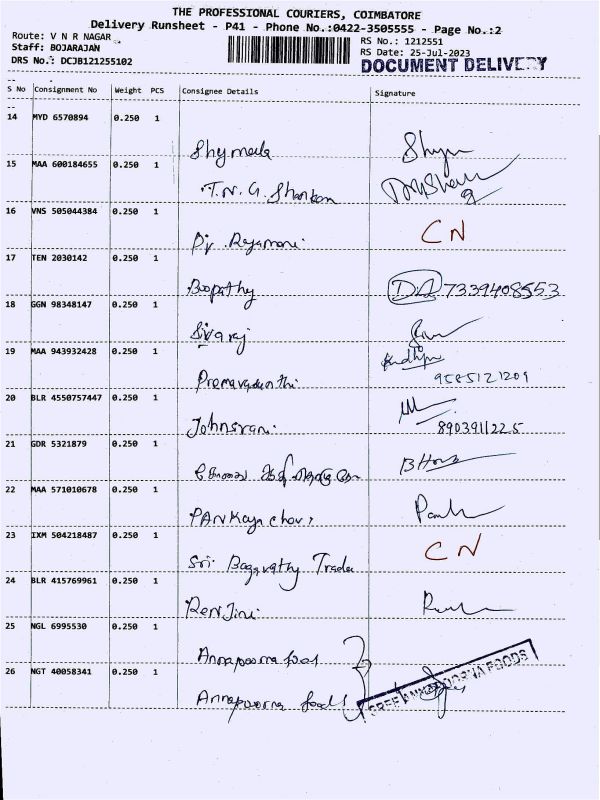 THE PROFESSIONAL COURIERS, COIMBATORE
Delivery Runsheet - P41 - Phone No.:0422-3505555 - Page No.:2
Route: V N R NAGAR
Staff: BOJARAJAN
DRS No.: DCJB121255102
RS No.: 1212551
RS Date: 25-Jul-2023
DOCUMENT DELIVERY
S No Consignment No Weight PCS Consignee Details Signature
14 MYD 6570894 0.250 1
Shymala Shym
15 MAA 600184655 0.250 1
T.N.G. Shankar
16 VNS 505044384 0.250 1
CN
Dr. Rajamani
17 TEN 2030142 0.250 1
Boopathy 7339408553
18 GGN 98348147 0.250 1
Sivaraj
19 MAA 943932428 0.250 1
9585121209
20 BLR 4550757447 0.250 1
8903911225
21 GDR 5321879 0.250 1
22 MAA 571010678 0.250 1
PANKaj
23 IXM 504218487 0.250 1
CN
Sri Bagavathy Trade
24 BLR 415769961 0.250 1
RenJini
25 NGL 6995530 0.250 1
Annapoorna food
26 NGT 40058341 0.250 1
Annapoorna foods
SREE ANNAPOORNA FOODS